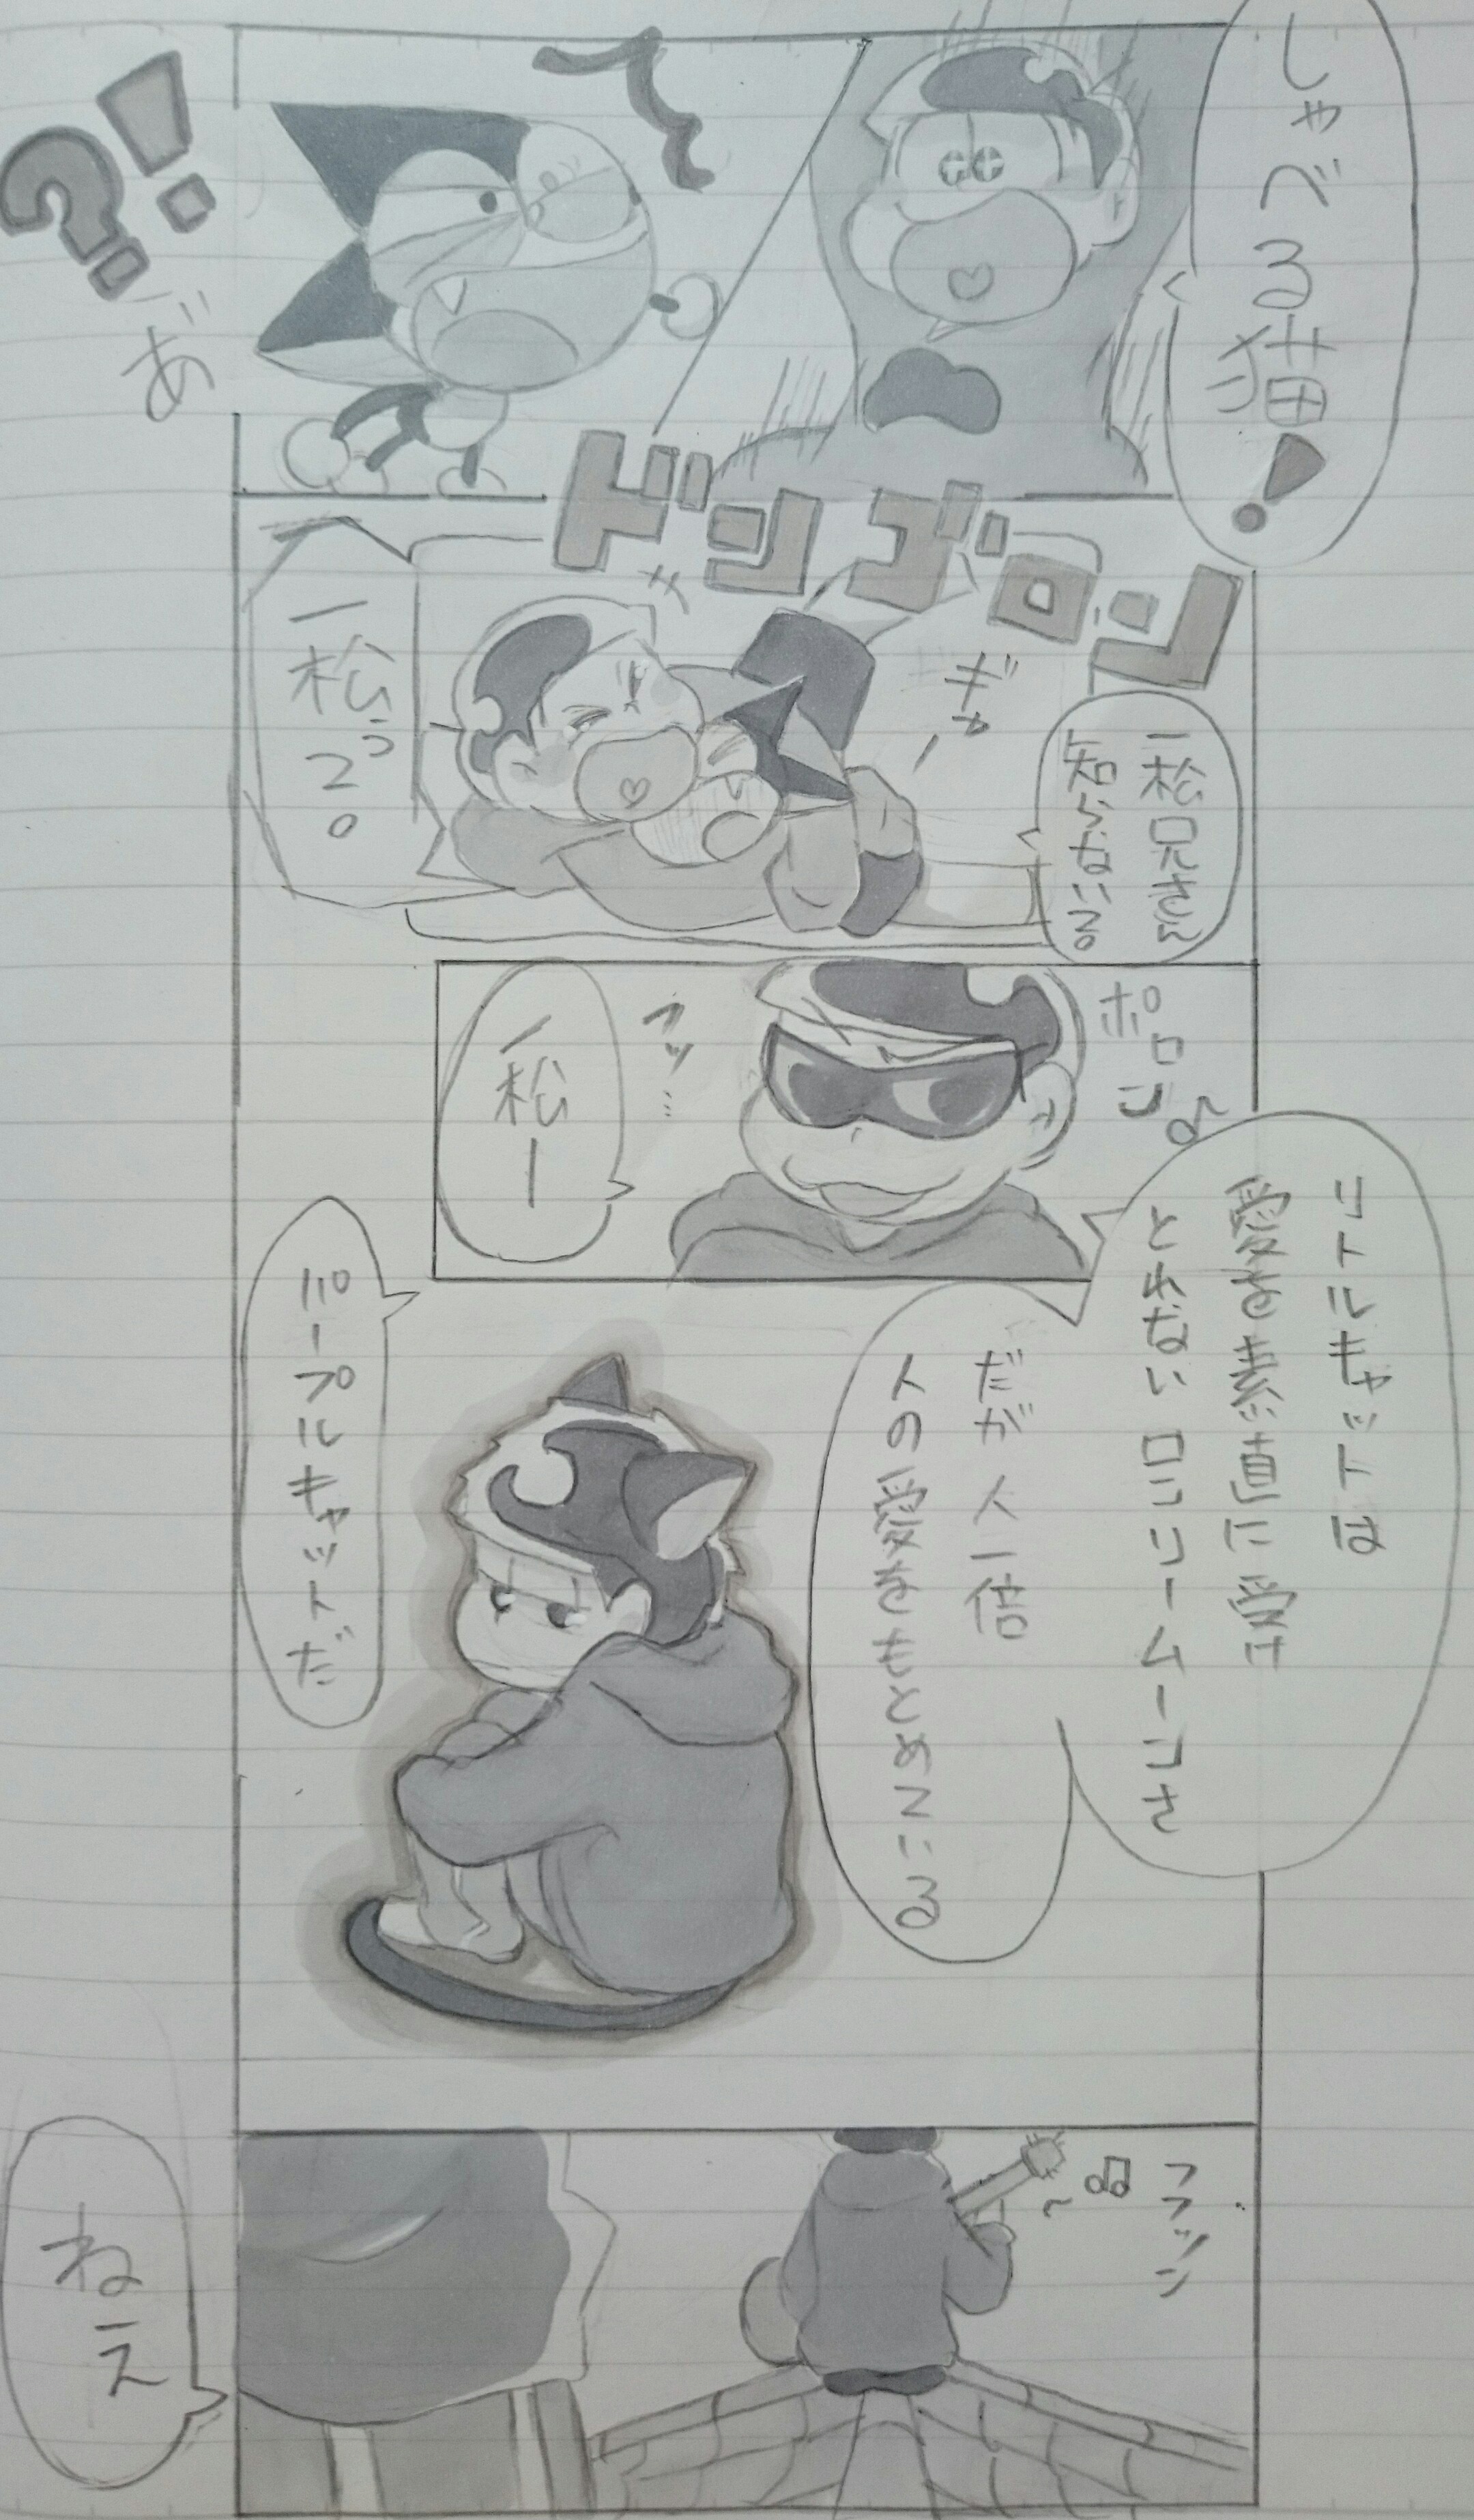 しゃべる猫!
!?
あ゛
ドンゴロン
ギャー
一松兄さん
知らない?
一松ぅ
ポロン♪
フッ…
一松ー
リトルキャットは
愛を素直に受け
とれないロンリームーンさ
だが人一倍
人の愛をもとめている
パープルキャットだ
フフッン
ねえ